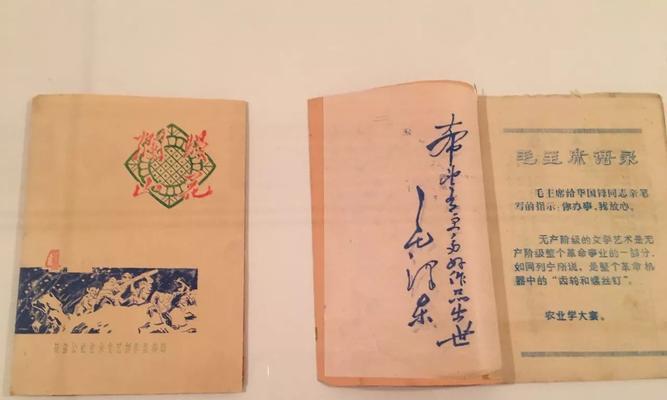 山花
希望有更多好作品出世
毛泽东
毛主席语录
毛主席给华国锋同志亲笔
写的指示：你办事，我放心。
无产阶级的文学艺术是无
产阶级整个革命事业的一部分，
如同列宁所说，是整个革命机
器中的“齿轮和螺丝钉”
农业学大寨。